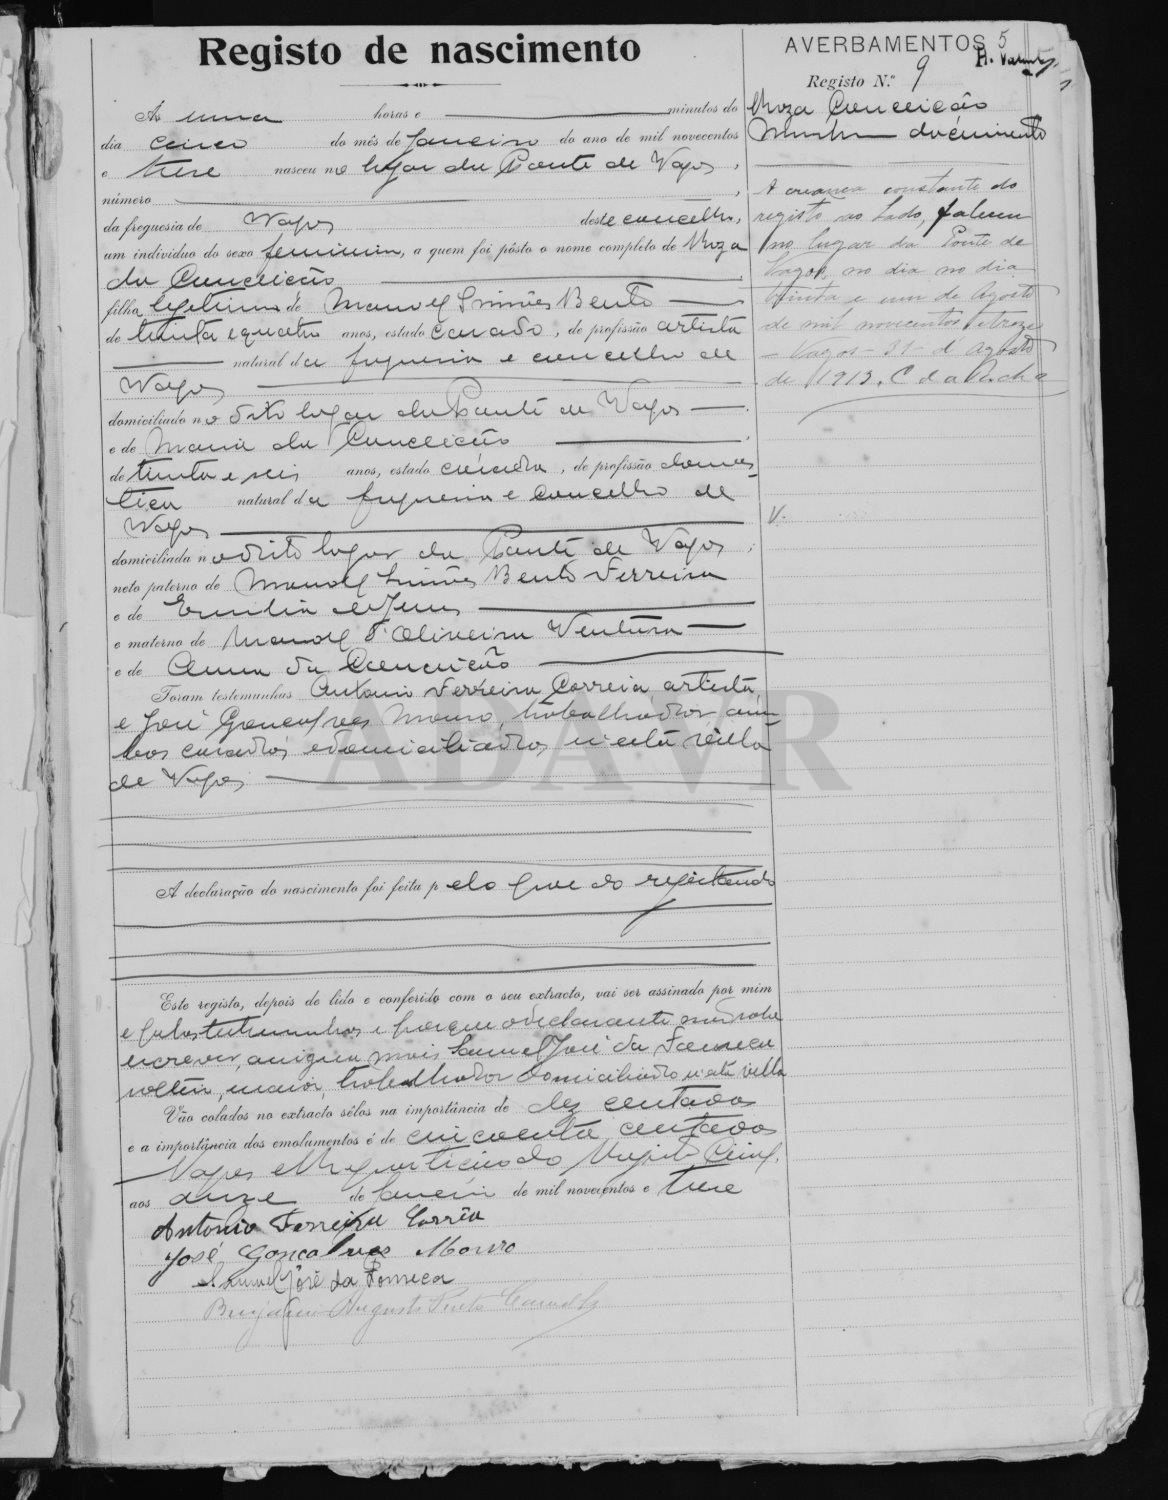 Registo de nascimento
Ás uma horas e minutos do
dia cinco do mês de Janeiro do ano de mil novecentos
e treze nasceu no lugar da Ponte de Vagos,
número
da freguesia de Vagos deste concelho,
um individuo do sexo feminino, a quem foi pôsto o nome completo de Roza
da Conceição
filha legitima de Manoel Simões Bento
de trinta e quatro anos, estado casado, de profissão artista
natural da freguesia e concelho de
Vagos
domiciliado no dito lugar da Ponte de Vagos
e de Maria da Conceição
de trinta e seis anos, estado casada, de profissão domes-
tica natural da freguesia e concelho de
Vagos
domiciliada no dito lugar da Ponte de Vagos;
neto paterno de Manoel Simões Bento Ferreira
e de Emilia de Jesus
e materno de Manoel d'Oliveira Ventura
e de Anna da Conceição
Foram testemunhas Antonio Ferreira Correia artista,
e José Gonçalves Mouro, trabalhador, am-
bos casados e domiciliados n'esta villa
de Vagos
A declaração do nascimento foi feita pelo pae do registando
Este registo, depois de lido e conferido com o seu extracto, vai ser assinado por mim
e pelas testemunhas e porque o declarante não sabe
escrever, assigna mais Samuel José da Fonseca
solteiro, maior, trabalhador domiciliado n'esta villa
Vão colados no extracto sêlos na importância de dez centavos
e a importância dos emolumentos é de cincoenta centavos
Vagos e Repartição do Registo Civil,
aos onze de Janeiro de mil novecentos e treze
Antonio Ferreira Corrêa
José Gonçalves Mouro
Samuel José da Fonseca
Benjamin Augusto Pinto
AVERBAMENTOS 5
Registo N.º 9
Roza Conceição
documento
A creança constante do
registo ao lado, faleceu
no lugar da Ponte de
Vagos, no dia no dia
trinta e um de Agosto
de mil novecentos e treze
- Vagos - 31 - d' Agosto
de 1913. C da Rocha
V.
ADAVR